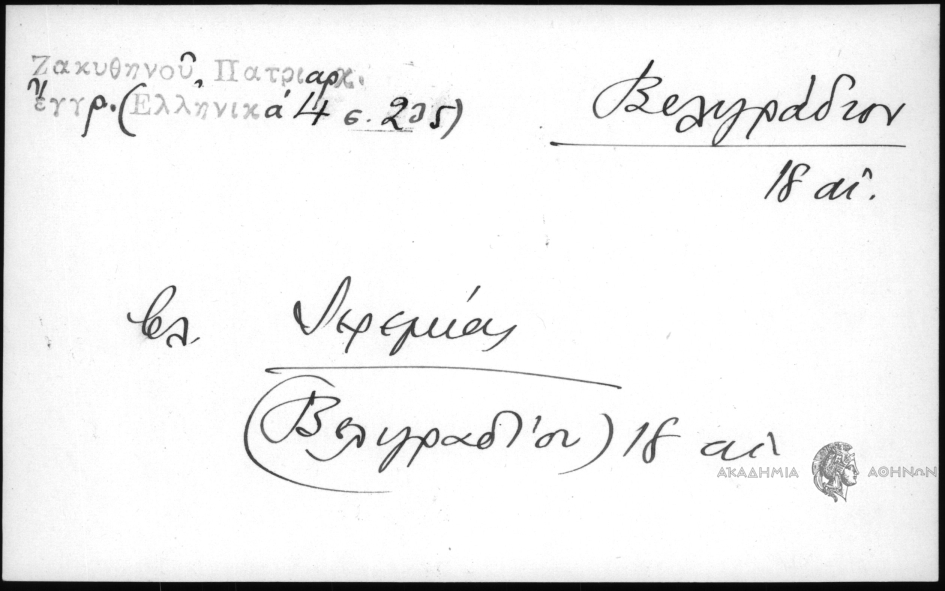 Ζακυθηνοῦ, Πατριαρχ.
ἔγγρ. (Ἑλληνικά 4 σ. 205)
Βελιγράδιον
18 αἰ.
βλ. Ἱερεμίας
(Βελιγραδίου) 18 αἰ
ΑΚΑΔΗΜΙΑ ΑΘΗΝΩΝ